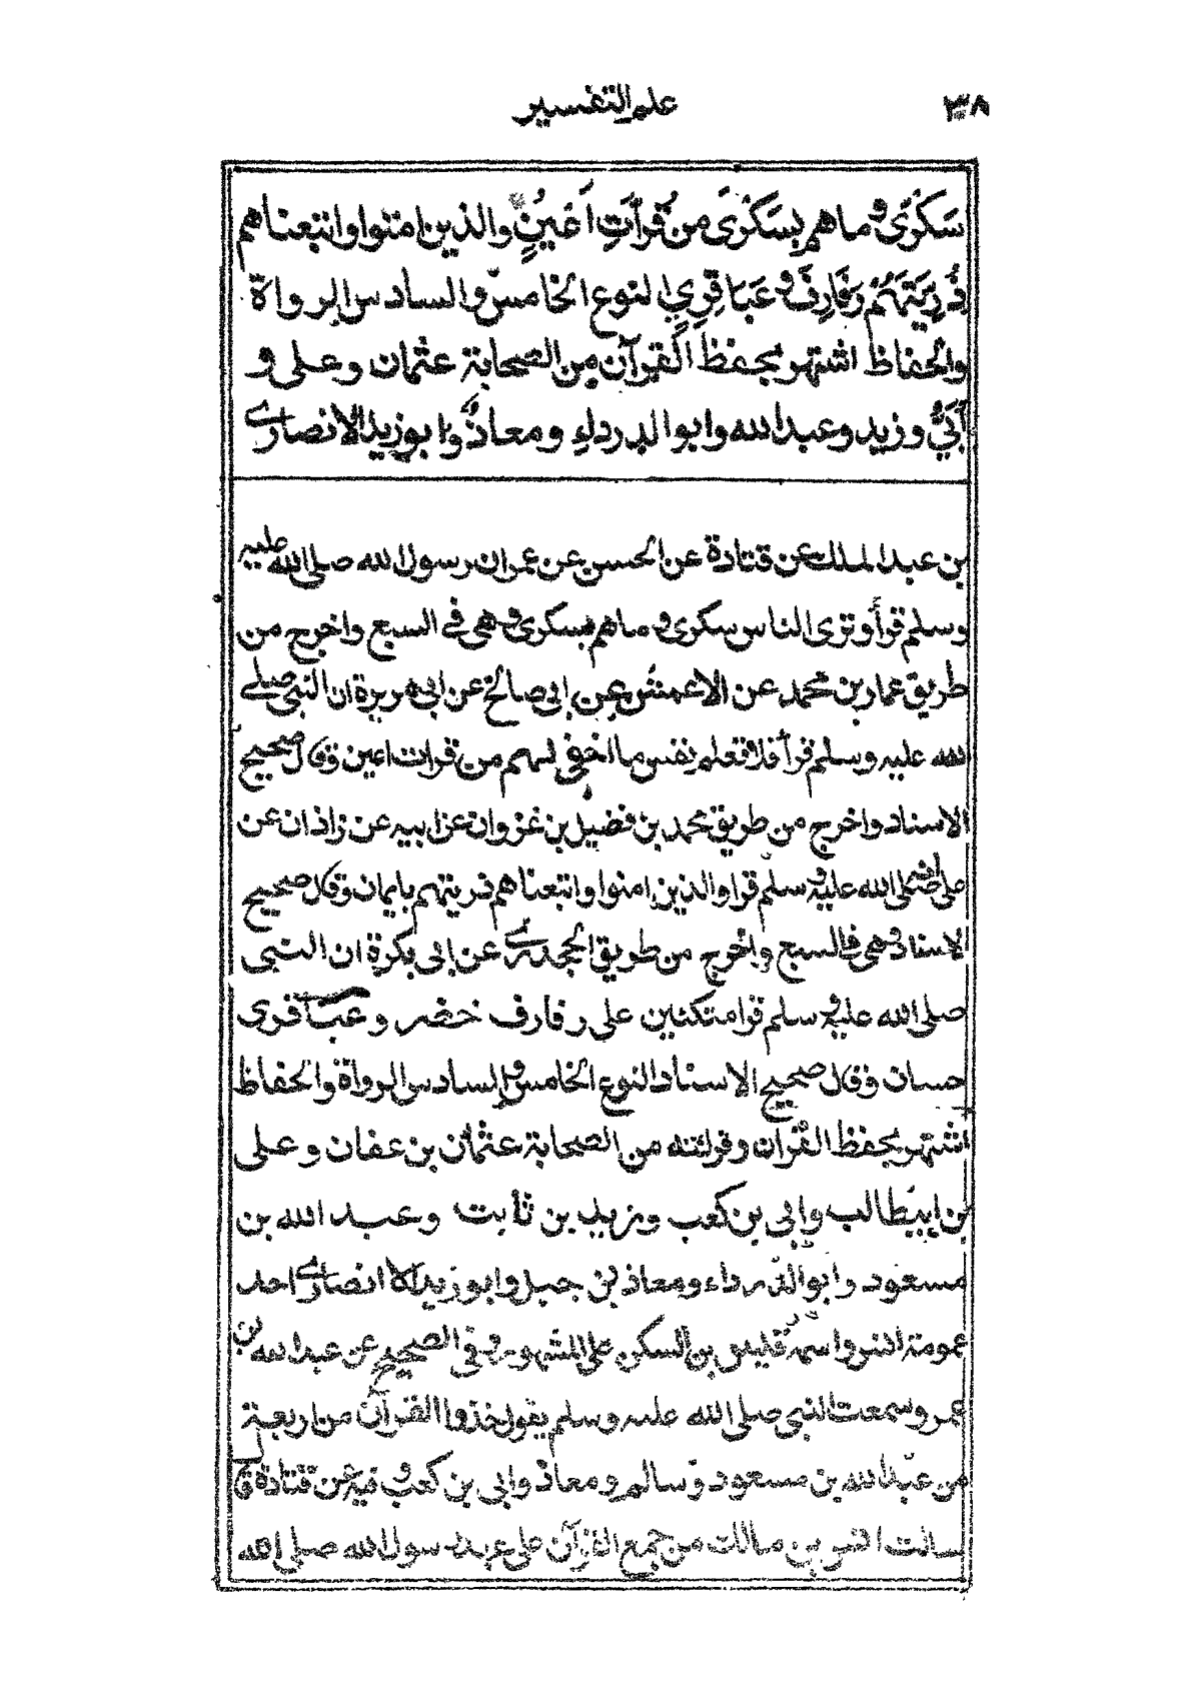 علم التفسير
٣٨
سَكْرٰى و ما هم بِسَكْرٰى من قُرَّاتِ اَعْيُنٍ والذين اٰمنوا واتبعناهم
ذُرِّيَّتَهُم رَفَارِفَ و عَبَاقِرِيِ النوع الخامس والسادس الرواة
والحفاظ اشتهر بحفظ القرآن من الصحابة عثمان وعلى و
اُبَيّ وزيد وعبد الله وابو الدرداء ومعاذ وابو زيد الانصارى
بن عبد الملك عن قتادة عن الحسن عن عمران رسول الله صلى الله عليه
وسلم قرأ وترى الناس سكرى وما هم بسكرى وهى فى السبع واخرج من
طريق عمار بن محمد عن الاعمش عن ابى صالح عن ابى هريرة ان النبى صلى
الله عليه وسلم قرأ فلا تعلم نفس ما اخفى لهم من قرات اعين وقال صحيح
الاسناد واخرج من طريق محمد بن فضيل بن غزوان عن ابيه عن زاذان عن
على انه صلى الله عليه وسلم قرا والذين امنوا واتبعناهم ذريتهم بايمان وقال صحيح
الاسناد وهى فى السبع واخرج من طريق الجحدرى عن ابى بكرة ان النبى
صلى الله عليه وسلم قرا متكئين على رفارف خضر وعباقرى
حسان وقال صحيح الاسناد النوع الخامس والسادس الرواة والحفاظ
اشتهر بحفظ القران وقرائته من الصحابة عثمان بن عفان وعلى
بن ابيطالب وابى بن كعب وزيد بن ثابت وعبد الله بن
مسعود وابو الدرداء ومعاذ بن جبل وابو زيد الانصارى احد
عمومة انس واسمه قيس بن السكن على المشهور وفى الصحيح عن عبد الله بن
عمر وسمعت النبى صلى الله عليه وسلم يقول خذوا القرآن من اربعة
من عبد الله بن مسعود وسالم ومعاذ وابى بن كعب وفيه عن قتادة قال
سالت انس بن مالك من جمع القرآن على عهد رسول الله صلى الله